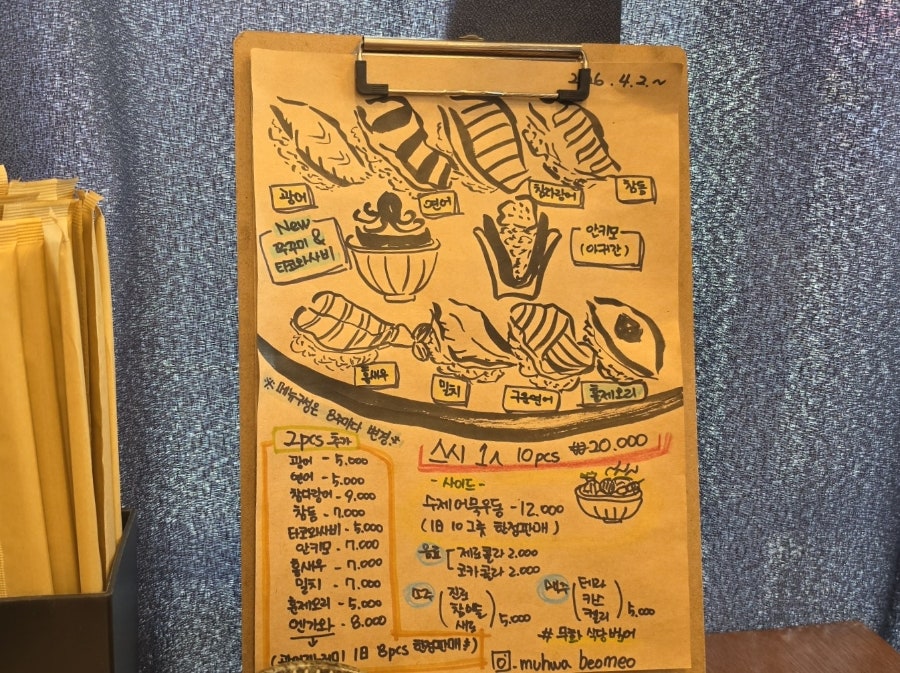 .4.2~
광어
연어
참다랑어
참돔
New
쭈꾸미 &
타코와사비
안키모
(아귀간)
홍새우
밀치
구운연어
훈제오리
※ 메뉴구성은 8주마다 변경 ※
2pcs 추가
스시 1人 10pcs ₩20.000
광어 - 5.000
연어 - 5.000
참다랑어 - 9.000
참돔 - 7.000
타코와사비 - 5.000
안키모 - 7.000
홍새우 - 7.000
밀치 - 7.000
훈제오리 - 5.000
엔가와 - 8.000
1日 8pcs 한정판매
- 사이드 -
수제어묵우동 - 12.000
(1日 10그릇 한정판매)
음료
제로콜라 2.000
코카콜라 2.000
소주
진로
참이슬
새로
5.000
맥주
테라
카스
켈리
5.000
# 무화 식당범어
muhwa beomeo